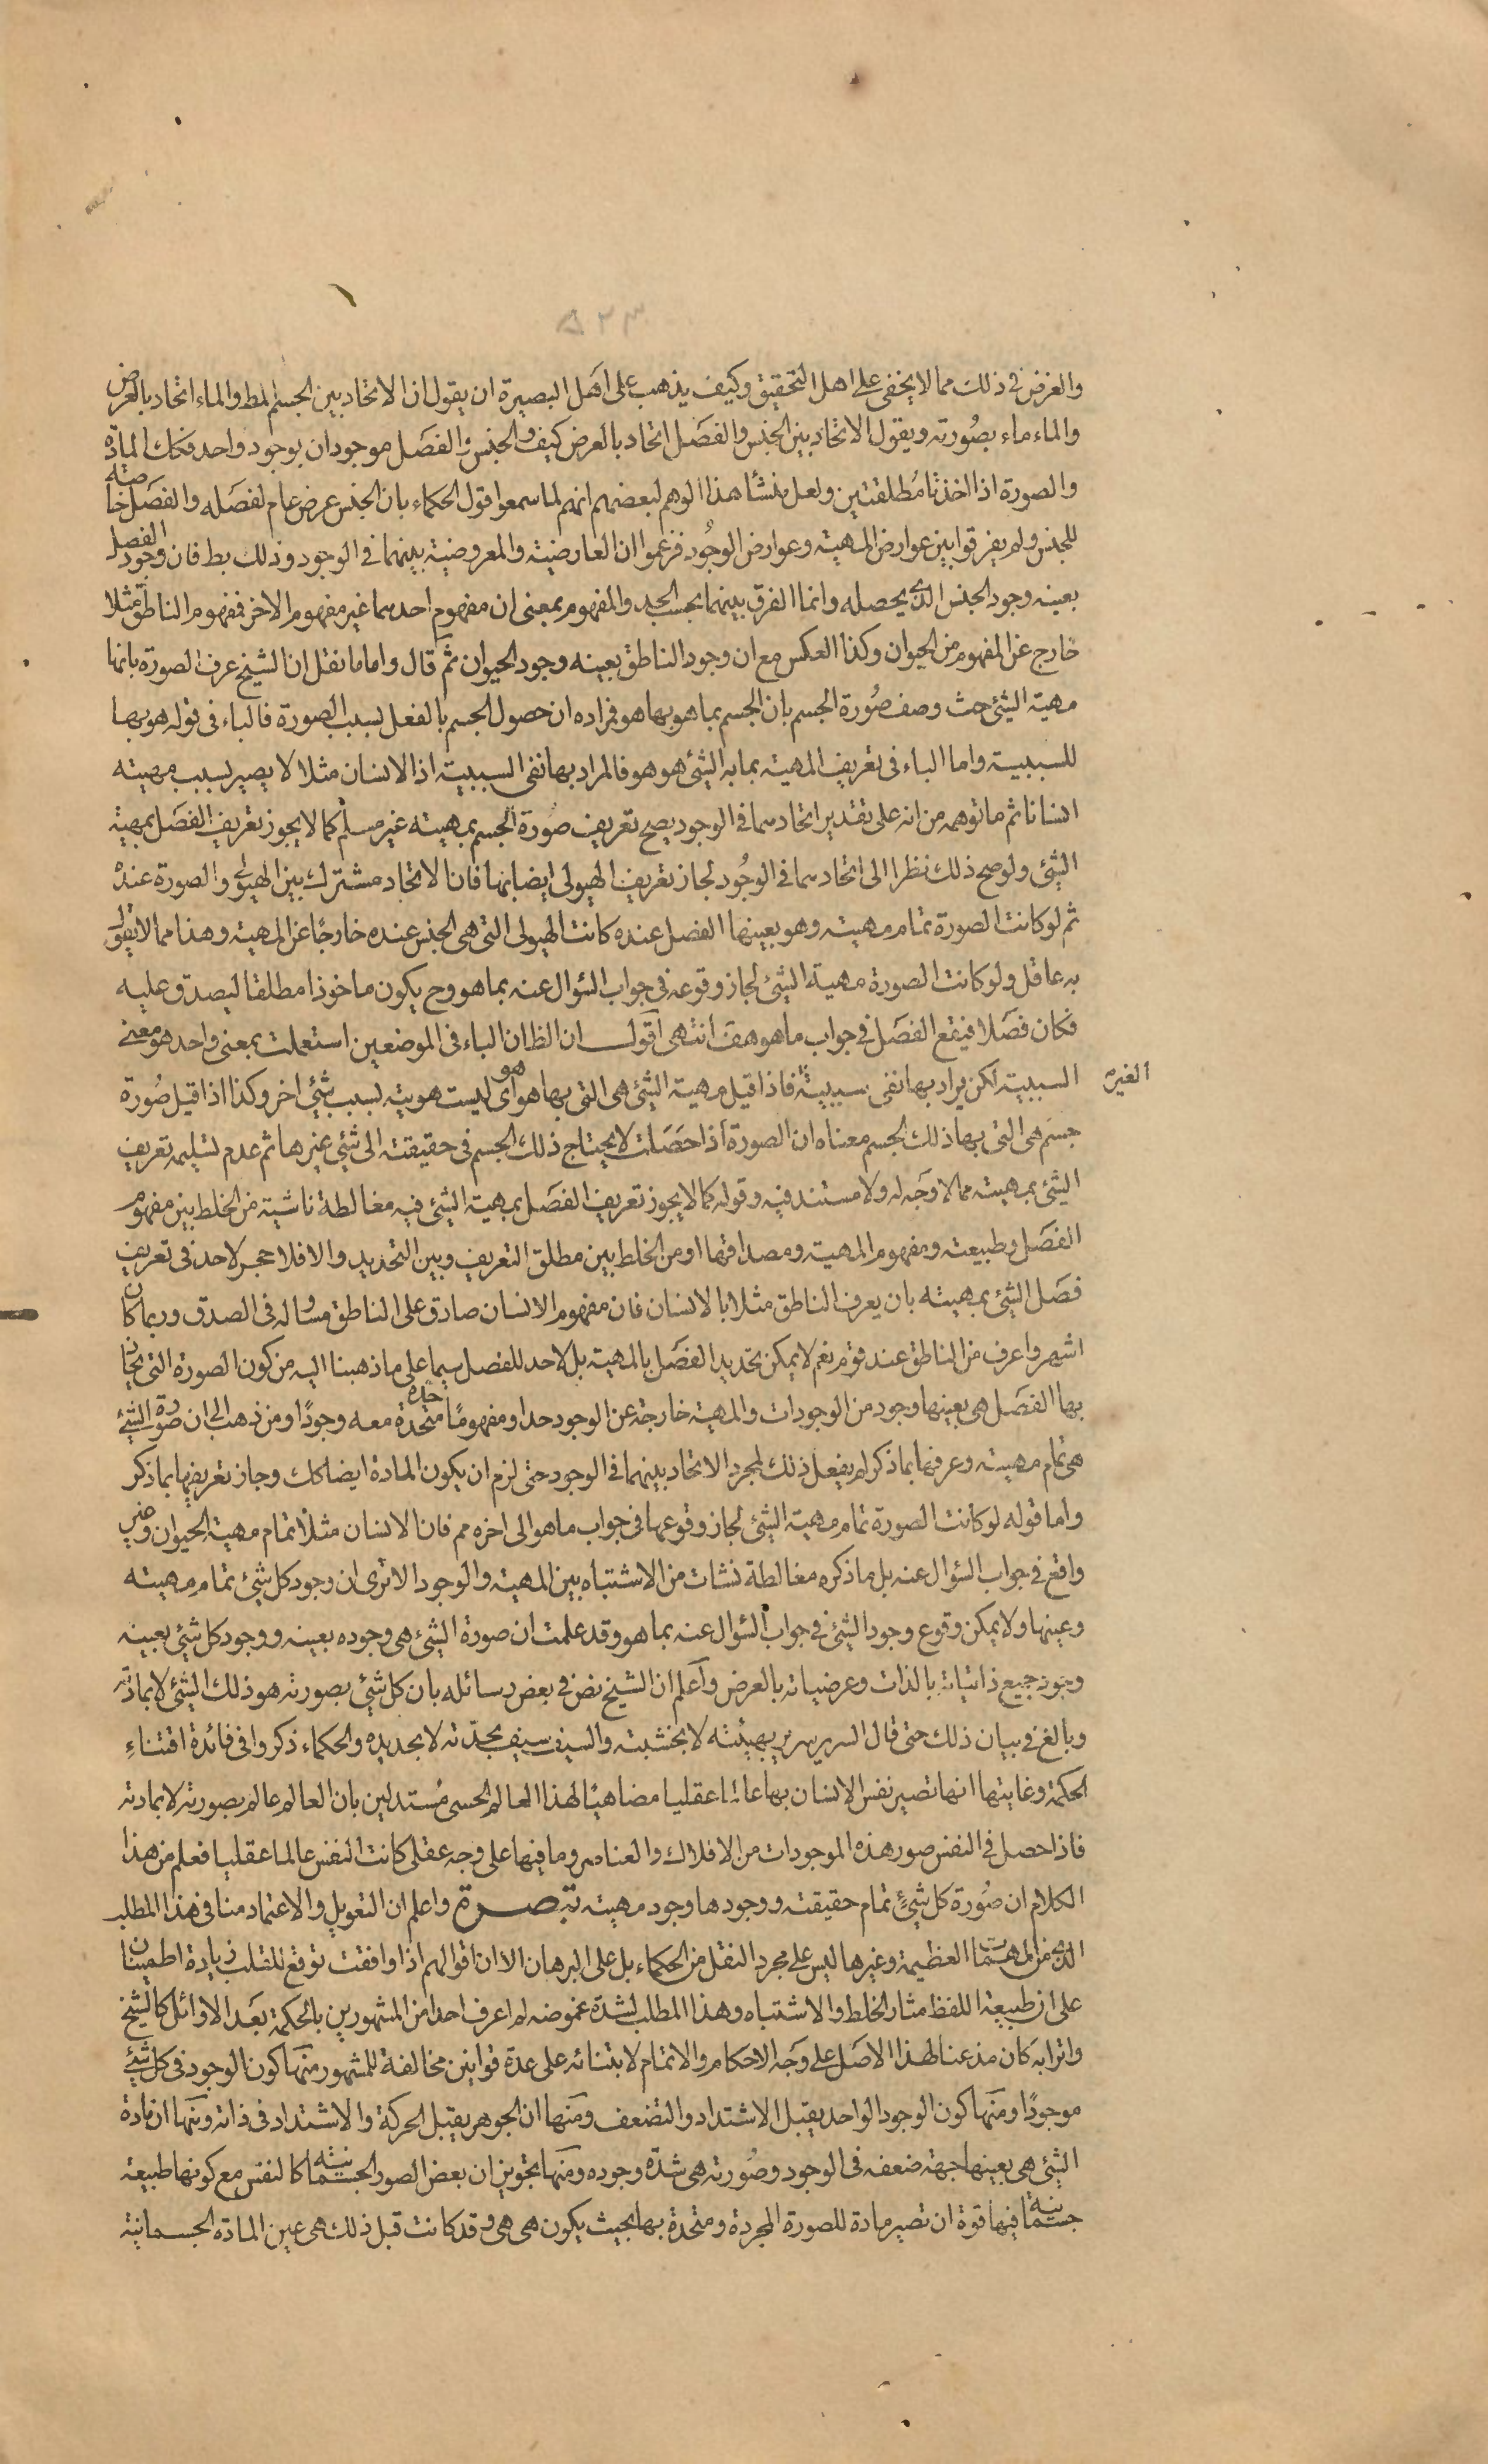 ٥٢٣
والغرض فى ذلك مما لا يخفى على اهل التحقيق وكيف يذهب على اهل البصيرة ان يقول ان الاتحاد بين الجسم المط والماء اتحاد بالعرض
والماء ماء بصورته ويقول الاتحاد بين الجنس والفصل اتحاد بالعرض كيف والجنس والفصل موجودان بوجود واحد فكك المادة
والصورة اذا اخذتا مطلقتين ولعل منشأ هذا الوهم لبعضهم انهم لما سمعوا قول الحكماء بان الجنس عرض عام لفصله والفصل خاصته
للجنس ولم يفرقوا بين عوارض المهية وعوارض الوجود فزعموا ان العارضية والمعروضية بينهما فى الوجود وذلك بط فان وجود الفصل
بعينه وجود الجنس الذى يحصله وانما الفرق بينهما بحسب الحد والمفهوم بمعنى ان مفهوم احدهما غير مفهوم الاخر فمفهوم الناطق مثلا
خارج عن المفهوم من الحيوان وكذا العكس مع ان وجود الناطق بعينه وجود الحيوان ثم قال واما ما نقل ان الشيخ عرف الصورة بانها
مهية الشئ حيث وصف صورة الجسم بان الجسم بما هو بها هو فمراده ان حصول الجسم بالفعل بسبب الصورة فالباء فى قوله هو بها
للسببية واما الباء فى تعريف المهية بما به الشئ هو هو فالمراد بها نفى السببية اذ الانسان مثلا لا يصير بسبب مهيته
انسانا ثم ما توهمه من انه على تقدير اتحادهما فى الوجود يصح تعريف صورة الجسم بمهيته غير مسلم كما لا يجوز تعريف الفصل بمهية
الشئ ولو صح ذلك نظرا الى اتحادهما فى الوجود لجاز تعريف الهيولى ايضا بها فان الاتحاد مشترك بين الهيولى والصورة عنده
ثم لو كانت الصورة تمام مهيته وهو بعينها الفصل عنده كانت الهيولى التى هى الجنس عنده خارجا عن المهية وهذا مما لا يتفوه
به عاقل ولو كانت الصورة مهية الشئ لجاز وقوعه فى جواب السؤال عنه بما هو وح يكون ماخوذا مطلقا ليصدق عليه
فكان فصلا فيقع الفصل فى جواب ما هو هف انتهى اقول ان الظ ان الباء فى الموضعين استعملت بمعنى واحد هو معنى
السببية لكن يراد بها نفى سببية الغير فاذا قيل مهية الشئ هى التى بها هو هو اى ليست هويته بسبب شئ اخر وكذا اذا قيل صورة
جسم هى التى بها ذلك الجسم معناه ان الصورة اذا حصلت لا يحتاج ذلك الجسم فى حقيقته الى شئ غيرها ثم عدم تسليمه تعريف
الشئ بمهيته مما لا وجه له ولا مستند فيه وقوله كما لا يجوز تعريف الفصل بمهية الشئ فيه مغالطة ناشية من الخلط بين مفهوم
الفصل وطبيعته ومفهوم المهية ومصداقها او من الخلط بين مطلق التعريف وبين التحديد والا فلا حجر لاحد فى تعريف
فصل الشئ بمهيته بان يعرف الناطق مثلا بالانسان فان مفهوم الانسان صادق على الناطق مساو له فى الصدق وربما كان
اشهر واعرف من الناطق عند قوم نعم لا يمكن تحديد الفصل بالمهية بل لا حد للفصل سيما على ما ذهبنا اليه من كون الصورة التى يحاذى
بها الفصل هى بعينها وجود من الوجودات والمهية خارجة عن الوجود حدا ومفهوما متحدة معه وجودا ومن ذهب الى ان صورة الشئ
هى تمام مهيته وعرفها بما ذكر لم يفعل ذلك لمجرد الاتحاد بينهما فى الوجود حتى لزم ان يكون المادة ايضا كك وجاز تعريفها بما ذكر
واما قوله لو كانت الصورة تمام مهية الشئ لجاز وقوعها فى جواب ما هو الى اخره مم فان الانسان مثلا تمام مهية الحيوان وغير
واقع فى جواب السؤال عنه بل ما ذكره مغالطة نشات من الاشتباه بين المهية والوجود الا ترى ان وجود كل شئ تمام مهيته
وعينها ولا يمكن وقوع وجود الشئ فى جواب السؤال عنه بما هو وقد علمت ان صورة الشئ هى وجوده بعينه ووجود كل شئ بعينه
وجود جميع ذاتياته بالذات وعرضياته بالعرض واعلم ان الشيخ نص فى بعض رسائله بان كل شئ بصورته هو ذلك الشئ لا بمادته
وبالغ فى بيان ذلك حتى قال السرير سرير بهيئته لا بخشبته والسيف سيف بحدته لا بحديده والحكماء ذكروا فى فائدة اقتناء
الحكمة وغايتها انها تصير نفس الانسان بها عالما عقليا مضاهيا لهذا العالم الحسى مستدلين بان العالم عالم بصورته لا بمادته
فاذا حصل فى النفس صور هذه الموجودات من الافلاك والعناصر وما فيها على وجه عقلى كانت النفس عالما عقليا فعلم من هذا
الكلام ان صورة كل شئ تمام حقيقته ووجودها وجود مهيته تبصرة واعلم ان التعويل والاعتماد منا فى هذا المطلب
الذى من المهمات العظيمة وغيرها ليس على مجرد النقل من الحكماء بل على البرهان الا ان اقوالهم اذا وافقت توقع للقلب زيادة اطمينان
على ان طبيعة اللفظ مثار الخلط والاشتباه وهذا المطلب لشدة غموضه لم اعرف احدا من المشهورين بالحكمة بعد الاوائل كالشيخ
واترابه كان مذعنا لهذا الاصل على وجه الاحكام والاتمام لابتنائه على عدة قوانين مخالفة للمشهور منها كون الوجود فى كل شئ
موجودا ومنها كون الوجود الواحد يقبل الاشتداد والتضعف ومنها ان الجوهر يقبل الحركة والاشتداد فى ذاته ومنها ان مادة
الشئ هى بعينها جهة ضعفه فى الوجود وصورته هى شدة وجوده ومنها تجويز ان بعض الصور الجسمانية كالنفس مع كونها طبيعة
جسمانية فيها قوة ان تصير مادة للصورة المجردة ومتحدة بها بحيث يكون هى هى وقد كانت قبل ذلك هى عين المادة الجسمانية